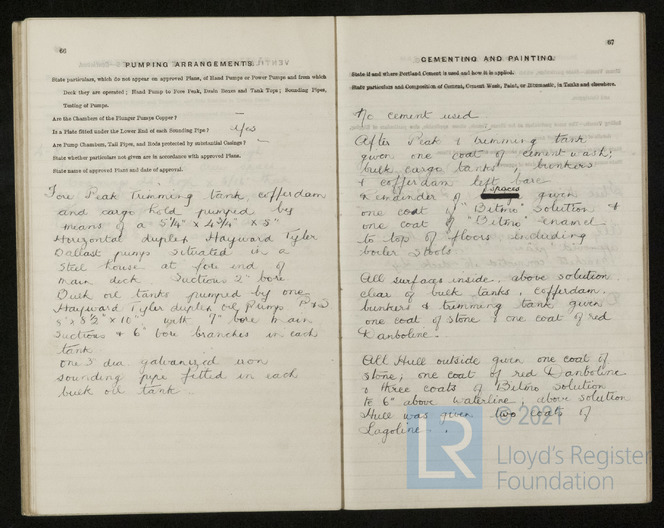 66
PUMPING ARRANGEMENTS.
State particulars, which do not appear on approved Plans, of Hand Pumps or Power Pumps and from which
Deck they are operated; Hand Pump to Fore Peak, Drain Boxes and Tank Tops; Sounding Pipes,
Testing of Pumps.
Are the Chambers of the Plunger Pumps Copper? —
Is a Plate fitted under the Lower End of each Sounding Pipe? Yes
Are Pump Chambers, Tail Pipes, and Rods protected by substantial Casings? —
State whether particulars not given are in accordance with approved Plans.
State name of approved Plans and date of approval.
Fore Peak Trimming tank, cofferdam
and cargo hold pumped by
means of a 5¼" × 4¾" × 5"
Horizontal duplex Hayward Tyler
Ballast pump situated in a
Steel house at fore end of
main deck. Suctions 2" bore
Bulk oil tanks pumped by one
Hayward Tyler duplex oil Pump P & S
× 8½" × 10" with 7" bore main
Suctions & 6" bore branches in each
tank
One 3" dia. galvanized iron
sounding pipe fitted in each
bulk oil tank
67
CEMENTING AND PAINTING.
State if and where Portland Cement is used and how it is applied.
State particulars and Composition of Cement, Cement Wash, Paint, or Bitumastic, in Tanks and elsewhere.
No cement used
After Peak & trimming tank
given one coat of cement wash;
bulk cargo tanks, bunkers
& cofferdam left bare
Remainder of spaces given
one coat of "Bitmo" Solution &
one coat of "Bitmo" enamel
to top of floors including
boiler Stools
All surfaces inside, above solution
clear of bulk tanks, cofferdam,
bunkers & trimming tank given
one coat of stone & one coat of red
Danboline.
All Hull outside given one coat of
stone; one coat of red Danboline
& three coats of Bitmo Solution
to 6" above waterline; above solution
Hull was given two coats of
Lagoline.
© 2021
LR
Lloyd's Register
Foundation